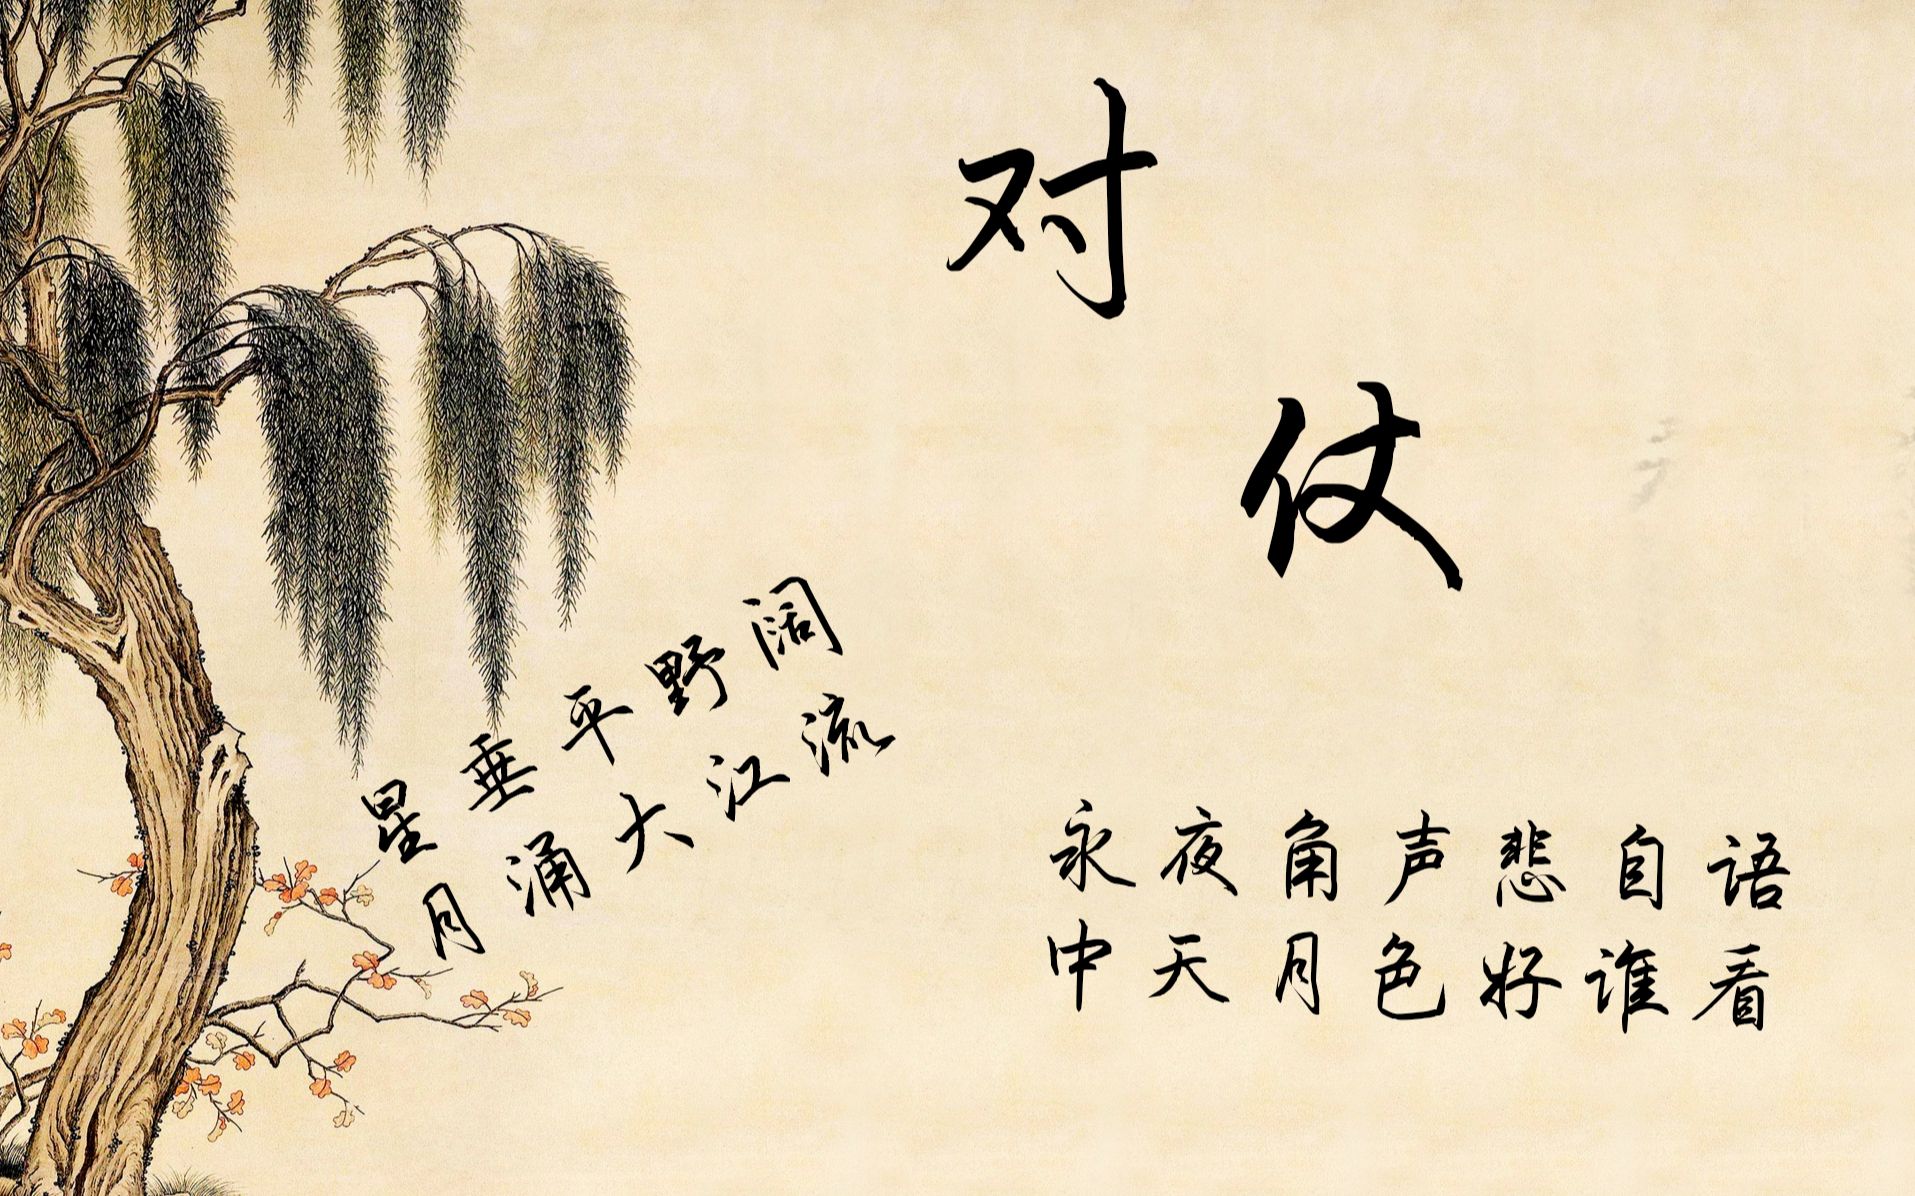 对仗
星垂平野阔
月涌大江流
永夜角声悲自语
中天月色好谁看